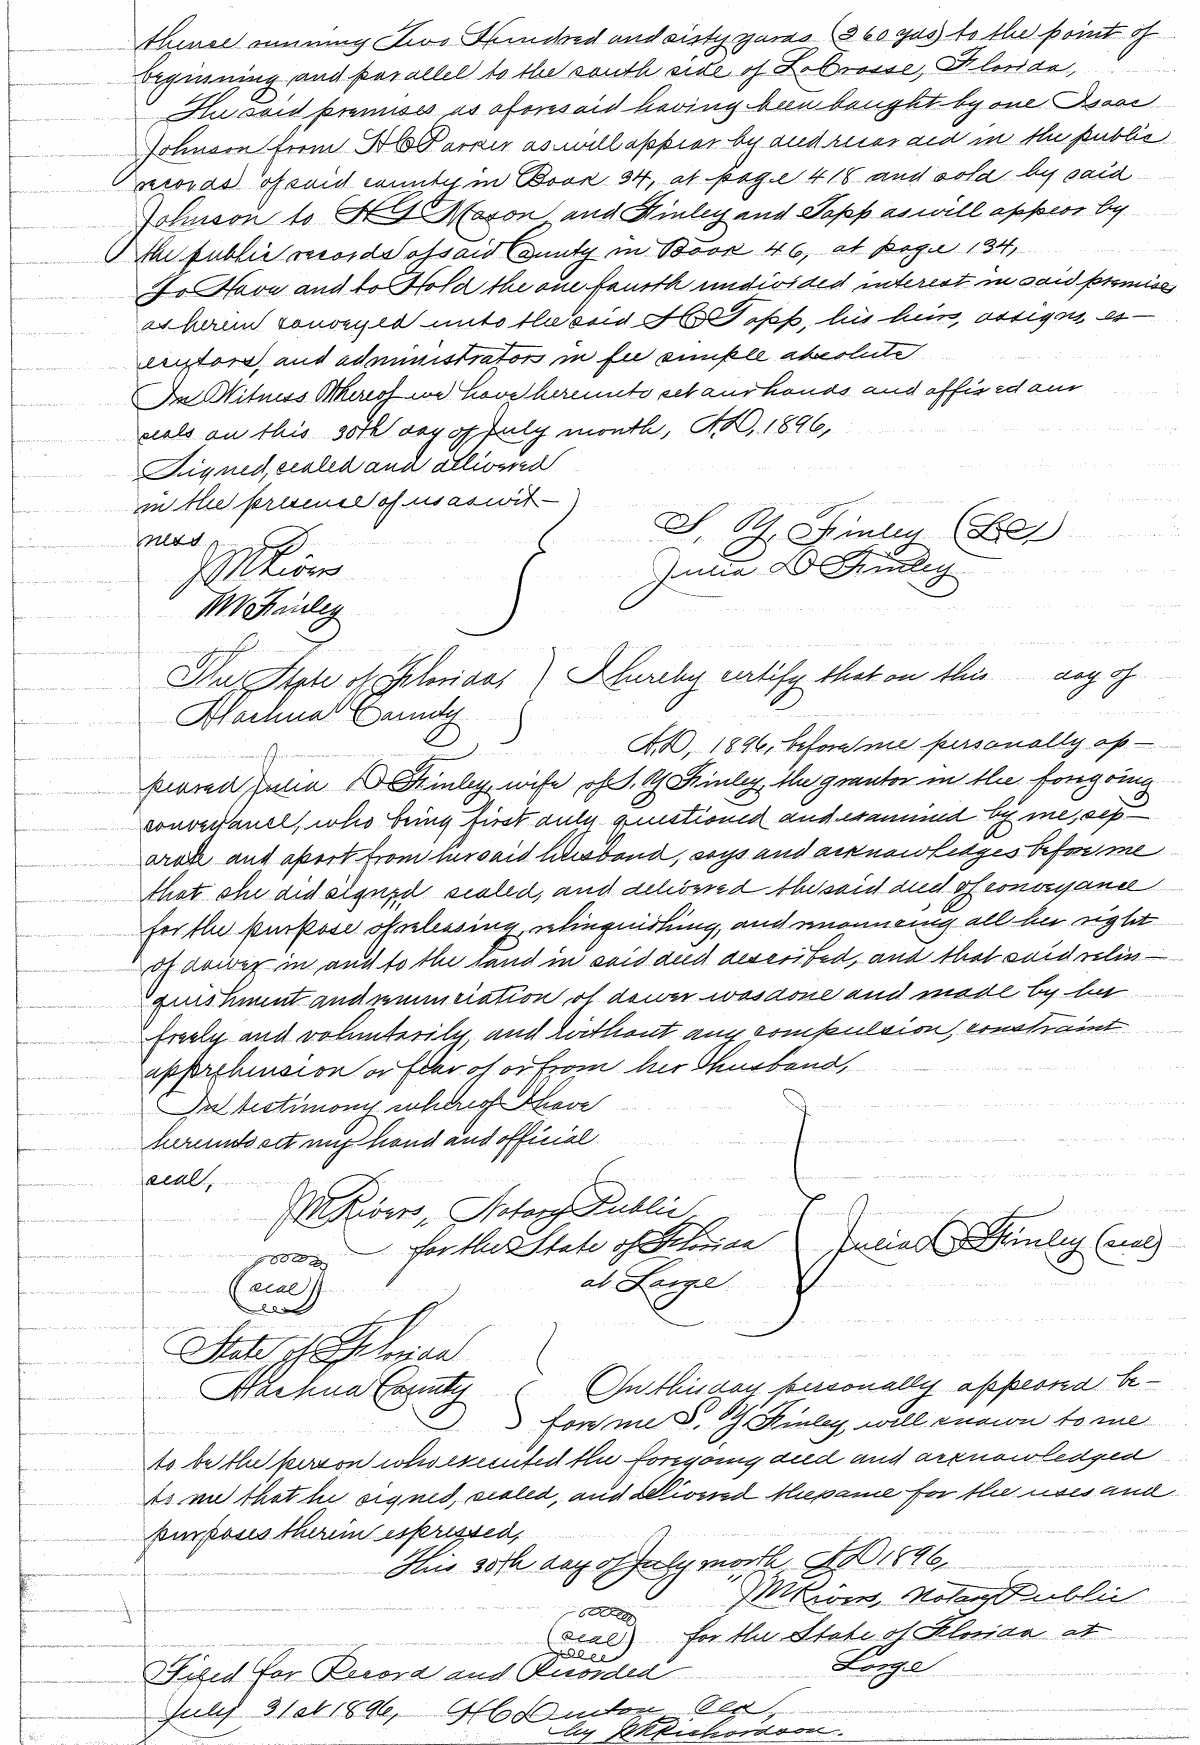 thence running Two Hundred and sixty yards (260 yds) to the point of
beginning and parallel to the south side of LaCrosse, Florida,
The said premises as aforesaid having been bought by one Isaac
Johnson from H C Parker as will appear by deed recorded in the public
records of said county in Book 34, at page 418 and sold by said
Johnson to H G Mason and Finley and Tapp as will appear by
the public records of said County in Book 46, at page 134,
To Have and to Hold the one fourth undivided interest in said premises
as herein conveyed unto the said H C Tapp, his heirs, assigns, ex—
ecutors, and administrators in fee simple absolute
In Witness Whereof we have hereunto set our hands and affixed our
seals on this 30th day of July month, A.D. 1896,
Signed, sealed and delivered
in the presence of us as wit—
ness
S. Y. Finley
Julia D Finley
M Rivers
Finley
The State of Florida,
I hereby certify that on this day of
Alachua County
A.D, 1896, before me personally ap—
peared Julia D Finley, wife of S. Y Finley, the grantor in the foregoing
conveyance, who being first duly questioned and examined by me, sep—
arate and apart from her said husband, says and acknowledges before me
that she did signed sealed, and delivered the said deed of conveyance
for the purpose of releasing, relinquishing, and renouncing all her right
of dower in and to the land in said deed described, and that said relin—
quishment and renunciation of dower was done and made by her
freely and voluntarily, and without any compulsion, constraint
apprehension or fear of or from her husband,
In testimony whereof I have
hereunto set my hand and official
seal,
M Rivers, Notary Public
for the State of Florida
at Large
Julia D Finley (seal)
(seal)
State of Florida
Alachua County
On this day personally appeared be—
fore me S. Y Finley, well known to me
to be the person who executed the foregoing deed and acknowledged
to me that he signed, sealed, and delivered the same for the uses and
purposes therein expressed,
This 30th day of July month, A D 1896,
M Rivers, Notary Public
(seal) for the State of Florida at
Large
Filed for Record and Recorded
July 31st 1896,
by Richardson.